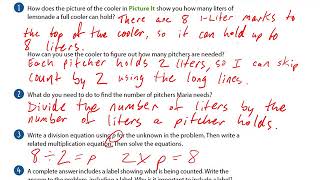 1 How does the picture of the cooler in Picture It show you how many liters of
lemonade a full cooler can hold? There are 8 1-Liter marks to
the top of the cooler, so it can hold up to
8 liters.
How can you use the cooler to figure out how many pitchers are needed?
Each pitcher holds 2 liters, so I can skip
count by 2 using the long lines.
2 What do you need to do to find the number of pitchers Maria needs?
Divide the number of liters by the
number of liters a pitcher holds.
3 Write a division equation using p for the unknown in the problem. Then write a
related multiplication equation. Then solve the equations.
8 ÷ 2 = p 2 x p = 8
4 A complete answer includes a label showing what is being counted. Write the